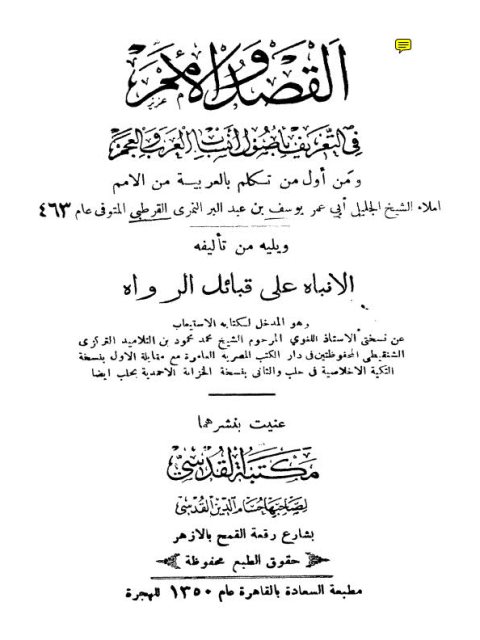 القصد والأمم
في التعريف بأصول أنساب العرب والعجم
ومن أول من تكلم بالعربية من الامم
املاء الشيخ الجليل أبي عمر يوسف بن عبد البر النمرى القرطبي المتوفى عام ٤٦٣
ويليه من تأليفه
الانباه على قبائل الرواه
وهو المدخل لكتابه الاستيعاب
عن نسختي الاستاذ اللغوي المرحوم الشيخ محمد محمود بن التلاميد التركزى
الشنقيطي المحفوظتين في دار الكتب المصريه العامرة مع مقابلة الاول بنسخة
التكية الاخلاصية في حلب والثاني بنسخة الخزانة الاحمدية بحلب ايضا
عنيت بنشرهما
مكتبة القدسي
لصاحبها حسام الدين القدسي
بشارع رقعة القمح بالازهر
حقوق الطبع محفوظة
مطبعة السعادة بالقاهرة عام ١٣٥٠ للهجرة